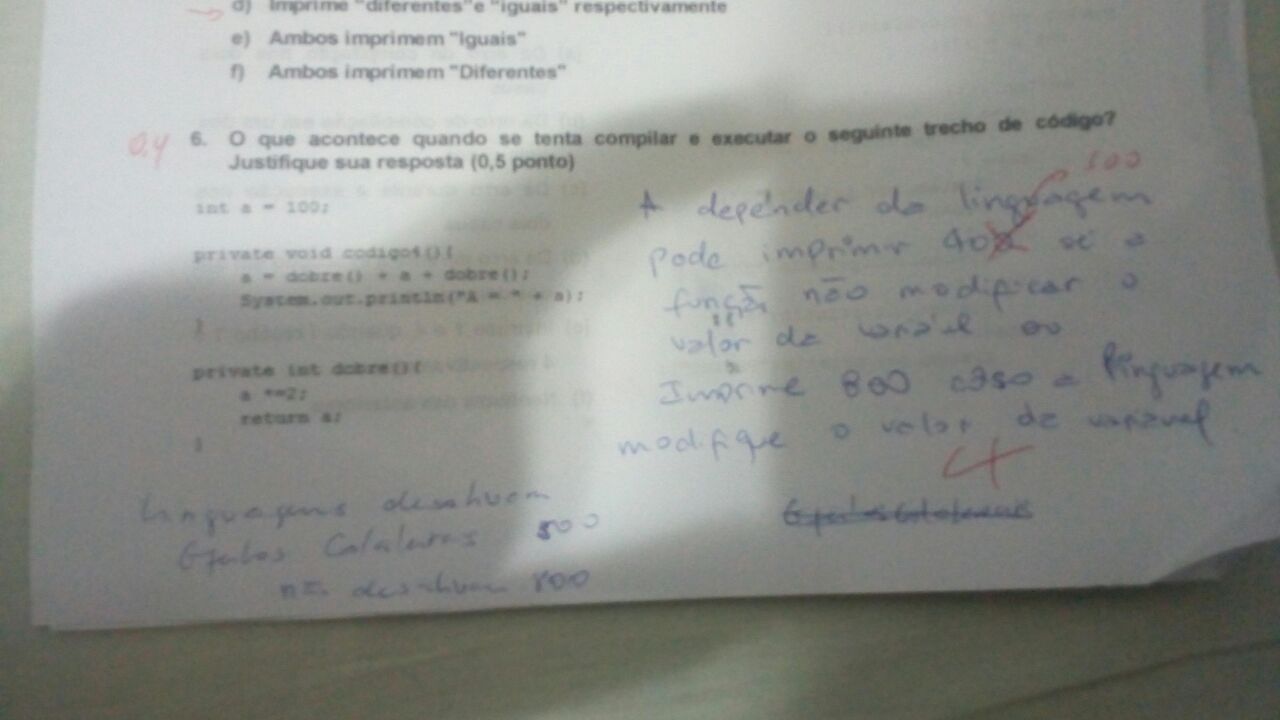 d) Imprime "diferentes"e "iguais" respectivamente
e) Ambos imprimem "Iguais"
f) Ambos imprimem "Diferentes"
0,4
6. O que acontece quando se tenta compilar e executar o seguinte trecho de código?
Justifique sua resposta (0,5 ponto)
int a = 100;
private void codigo4(){
a = dobre() + a + dobre();
System.out.println("A = " + a);
}
private int dobre(){
a *=2;
return a;
}
500
A depender da linguagem
pode imprimir 400 se a
função não modificar o
valor da variável ou
Imprime 800 caso a linguagem
modifique o valor da variável
Linguagens
Efeitos Colaterais 500
800
Efeitos Colaterais